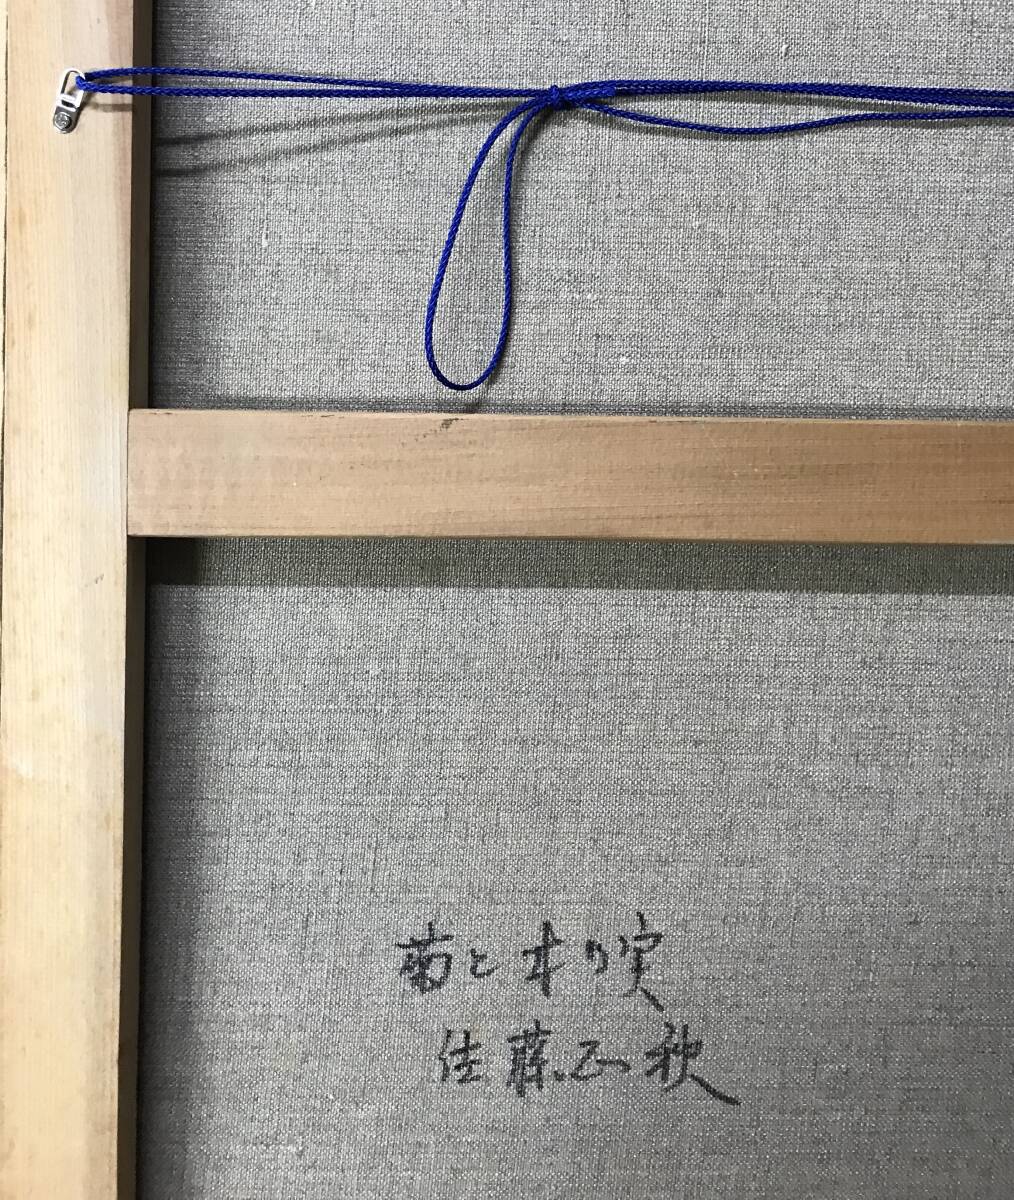 菊と木の実
佐藤正秋